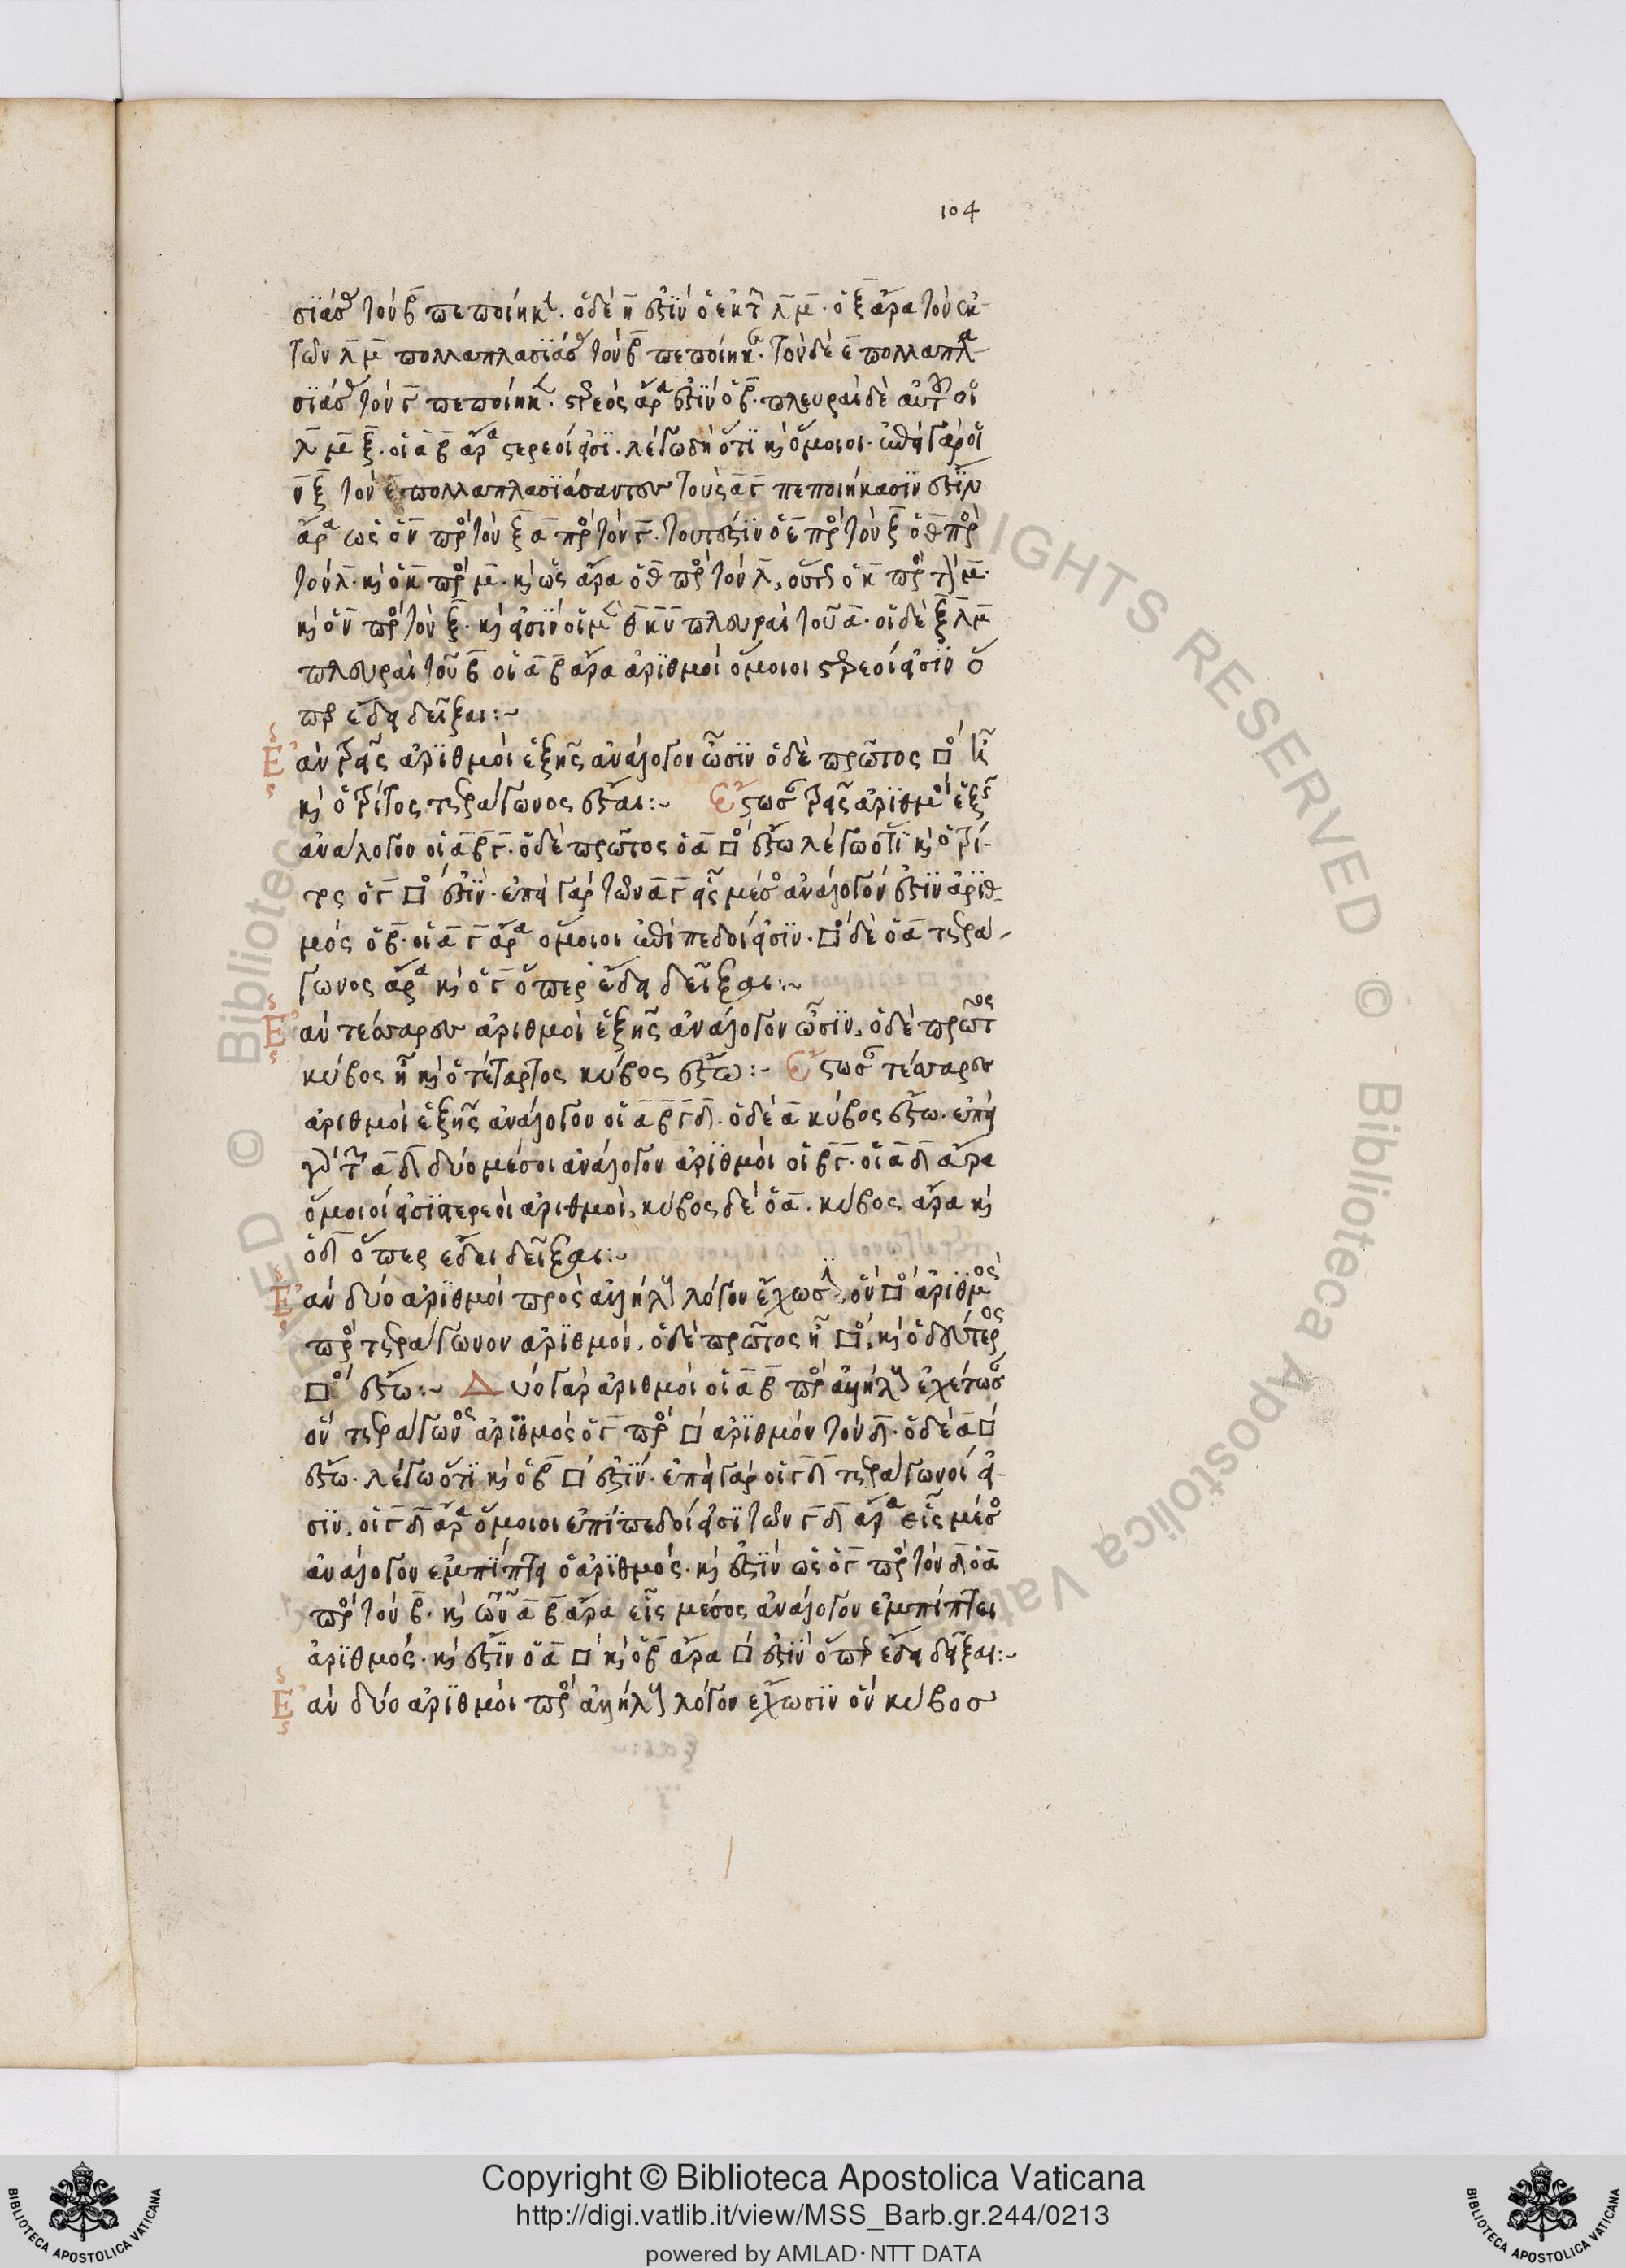 104
σϊάσας τὸν β̅ πεποίηκεν. ὁ δὲ η̅ ἐστϊν ὁ ἐκ τῶν λ̅ μ̅. ὁ ξ̅ ἄρα τὸν ἐκ
τῶν λ̅ μ̅ πολλαπλασϊάσας τὸν β̅ πεποίηκεν. τὸν δὲ ε̅ πολλαπλα
σϊάσας τὸν γ̅ πεποίηκεν. στερεός ἄρα ἐστϊν ὁ β̅. πλευραὶ δὲ αὐτοῦ οἱ
λ̅ μ̅ ξ̅. οἱ α̅ β̅ ἄρα στερεοί εἰσϊ. λέγω δὴ ὅτϊ καὶ ὅμοιοι. ἐπεὶ γὰρ οἱ
ν̅ ξ̅ τὸν ε̅ πολλαπλασϊάσαντες τοὺς α̅ γ̅ πεποιήκασϊν ἐστϊν
ἄρα ὡς ὁ ν̅ πρὸς τὸν ξ̅ α̅ πρὸς τὸν γ̅. τουτέστϊν ὁ ε̅ πρὸς τὸν ξ̅ ὁ θ̅ πρὸς
τὸν λ̅. καὶ ὁ κ̅ πρὸς μ̅. καὶ ὡς ἄρα ὁ θ̅ πρὸς τὸν λ̅, οὕτως ὁ κ̅ πρὸς τὸν μ̅.
καὶ ὁ ν̅ πρὸς τὸν ξ̅. καί εἰσϊν οἱ μὲν θ̅ κ̅ ν̅ πλευραὶ τοῦ α̅. οἱ δὲ ξ̅ λ̅ μ̅
πλευραὶ τοῦ β̅ οἱ α̅ β̅ ἄρα ἀρϊθμοὶ ὅμοιοι στερεοί εἰσϊν ὅ
περ ἔδει δεῖξαι:~
Ἐὰν τρεῖς ἀρϊθμοὶ ἑξῆς ἀνάλογον ὦσϊν ὁ δὲ πρῶτος □ος ᾖ
καὶ ὁ τρίτος τετράγωνος ἔσται:~ Ἔστωσαν τρεῖς ἀρϊθμοὶ ἑξῆς
ἀνάλογον οἱ α̅ β̅ γ̅. ὁ δὲ πρῶτος ὁ α̅ □ος ἔστω λέγω ὅτϊ καὶ ὁ τρί-
τος ὁ γ̅ □ος ἐστϊν. ἐπεὶ γὰρ τῶν α̅ γ̅ εἷς μέσος ἀνάλογόν ἐστϊν ἀρϊθ-
μὸς ὁ β̅. οἱ α̅ γ̅ ἄρα ὅμοιοι ἐπίπεδοί εἰσϊν. □ος δὲ ὁ α̅ τετρά-
γωνος ἄρα καὶ ὁ γ̅ ὅπερ ἔδει δεῖξαι:~
Ἐὰν τέσσαρες ἀριθμοὶ ἑξῆς ἀνάλογον ὦσϊν, ὁ δὲ πρῶτος
κύβος ᾖ καὶ ὁ τέταρτος κύβος ἔσται:~ Ἔστωσαν τέσσαρες
ἀριθμοὶ ἑξῆς ἀνάλογον οἱ α̅ β̅ γ̅ δ̅. ὁ δὲ α̅ κύβος ἔστω. ἐπεὶ
γὰρ τῶν α̅ δ̅ δύο μέσοι ἀνάλογον ἀρϊθμοὶ οἱ β̅ γ̅. οἱ α̅ δ̅ ἄρα
ὅμοιοί εἰσϊ στερεοὶ ἀριθμοὶ, κύβος δὲ ὁ α̅. κύβος ἄρα καὶ
ὁ δ̅ ὅπερ ἔδει δεῖξαι:~
Ἐὰν δύο ἀρϊθμοὶ πρὸς ἀλλήλους λόγον ἔχωσϊν, ὃν □ος ἀρϊθμὸς
πρὸς τετράγωνον ἀρϊθμὸν, ὁ δὲ πρῶτος ᾖ □ος, καὶ ὁ δεύτερος
□ος ἔσται:~ Δύο γὰρ ἀριθμοὶ οἱ α̅ β̅ πρὸς ἀλλήλους ἐχέτωσαν
ὃν τετράγωνος ἀρϊθμὸς ὁ γ̅ πρὸς □ ἀρϊθμὸν τὸν δ̅. ὁ δὲ α̅ □
ἔστω. λέγω ὅτϊ καὶ ὁ β̅ □ ἐστϊν. ἐπεὶ γὰρ οἱ γ̅ δ̅ τετράγωνοί εἰ-
σϊν, οἱ γ̅ δ̅ ἄρα ὅμοιοι ἐπίπεδοί εἰσϊ τῶν γ̅ δ̅ ἄρα εἷς μέσος
ἀνάλογον ἐμπίπτει ὁ ἀρϊθμός. καί ἐστϊν ὡς ὁ γ̅ πρὸς τὸν δ̅ ὁ α̅
πρὸς τὸν β̅. καὶ τῶν α̅ β̅ ἄρα εἷς μέσος ἀνάλογον ἐμπίπτει
ἀρϊθμός. καὶ ἔστϊν ὁ α̅ □ καὶ ὁ β̅ ἄρα □ ἐστϊν ὅπερ ἔδει δεῖξαι:~
Ἐὰν δύο ἀρϊθμοὶ πρὸς ἀλλήλους λόγον ἔχωσϊν ὃν κύβος
Copyright © Biblioteca Apostolica Vaticana
http://digi.vatlib.it/view/MSS_Barb.gr.244/0213
powered by AMLAD·NTT DATA